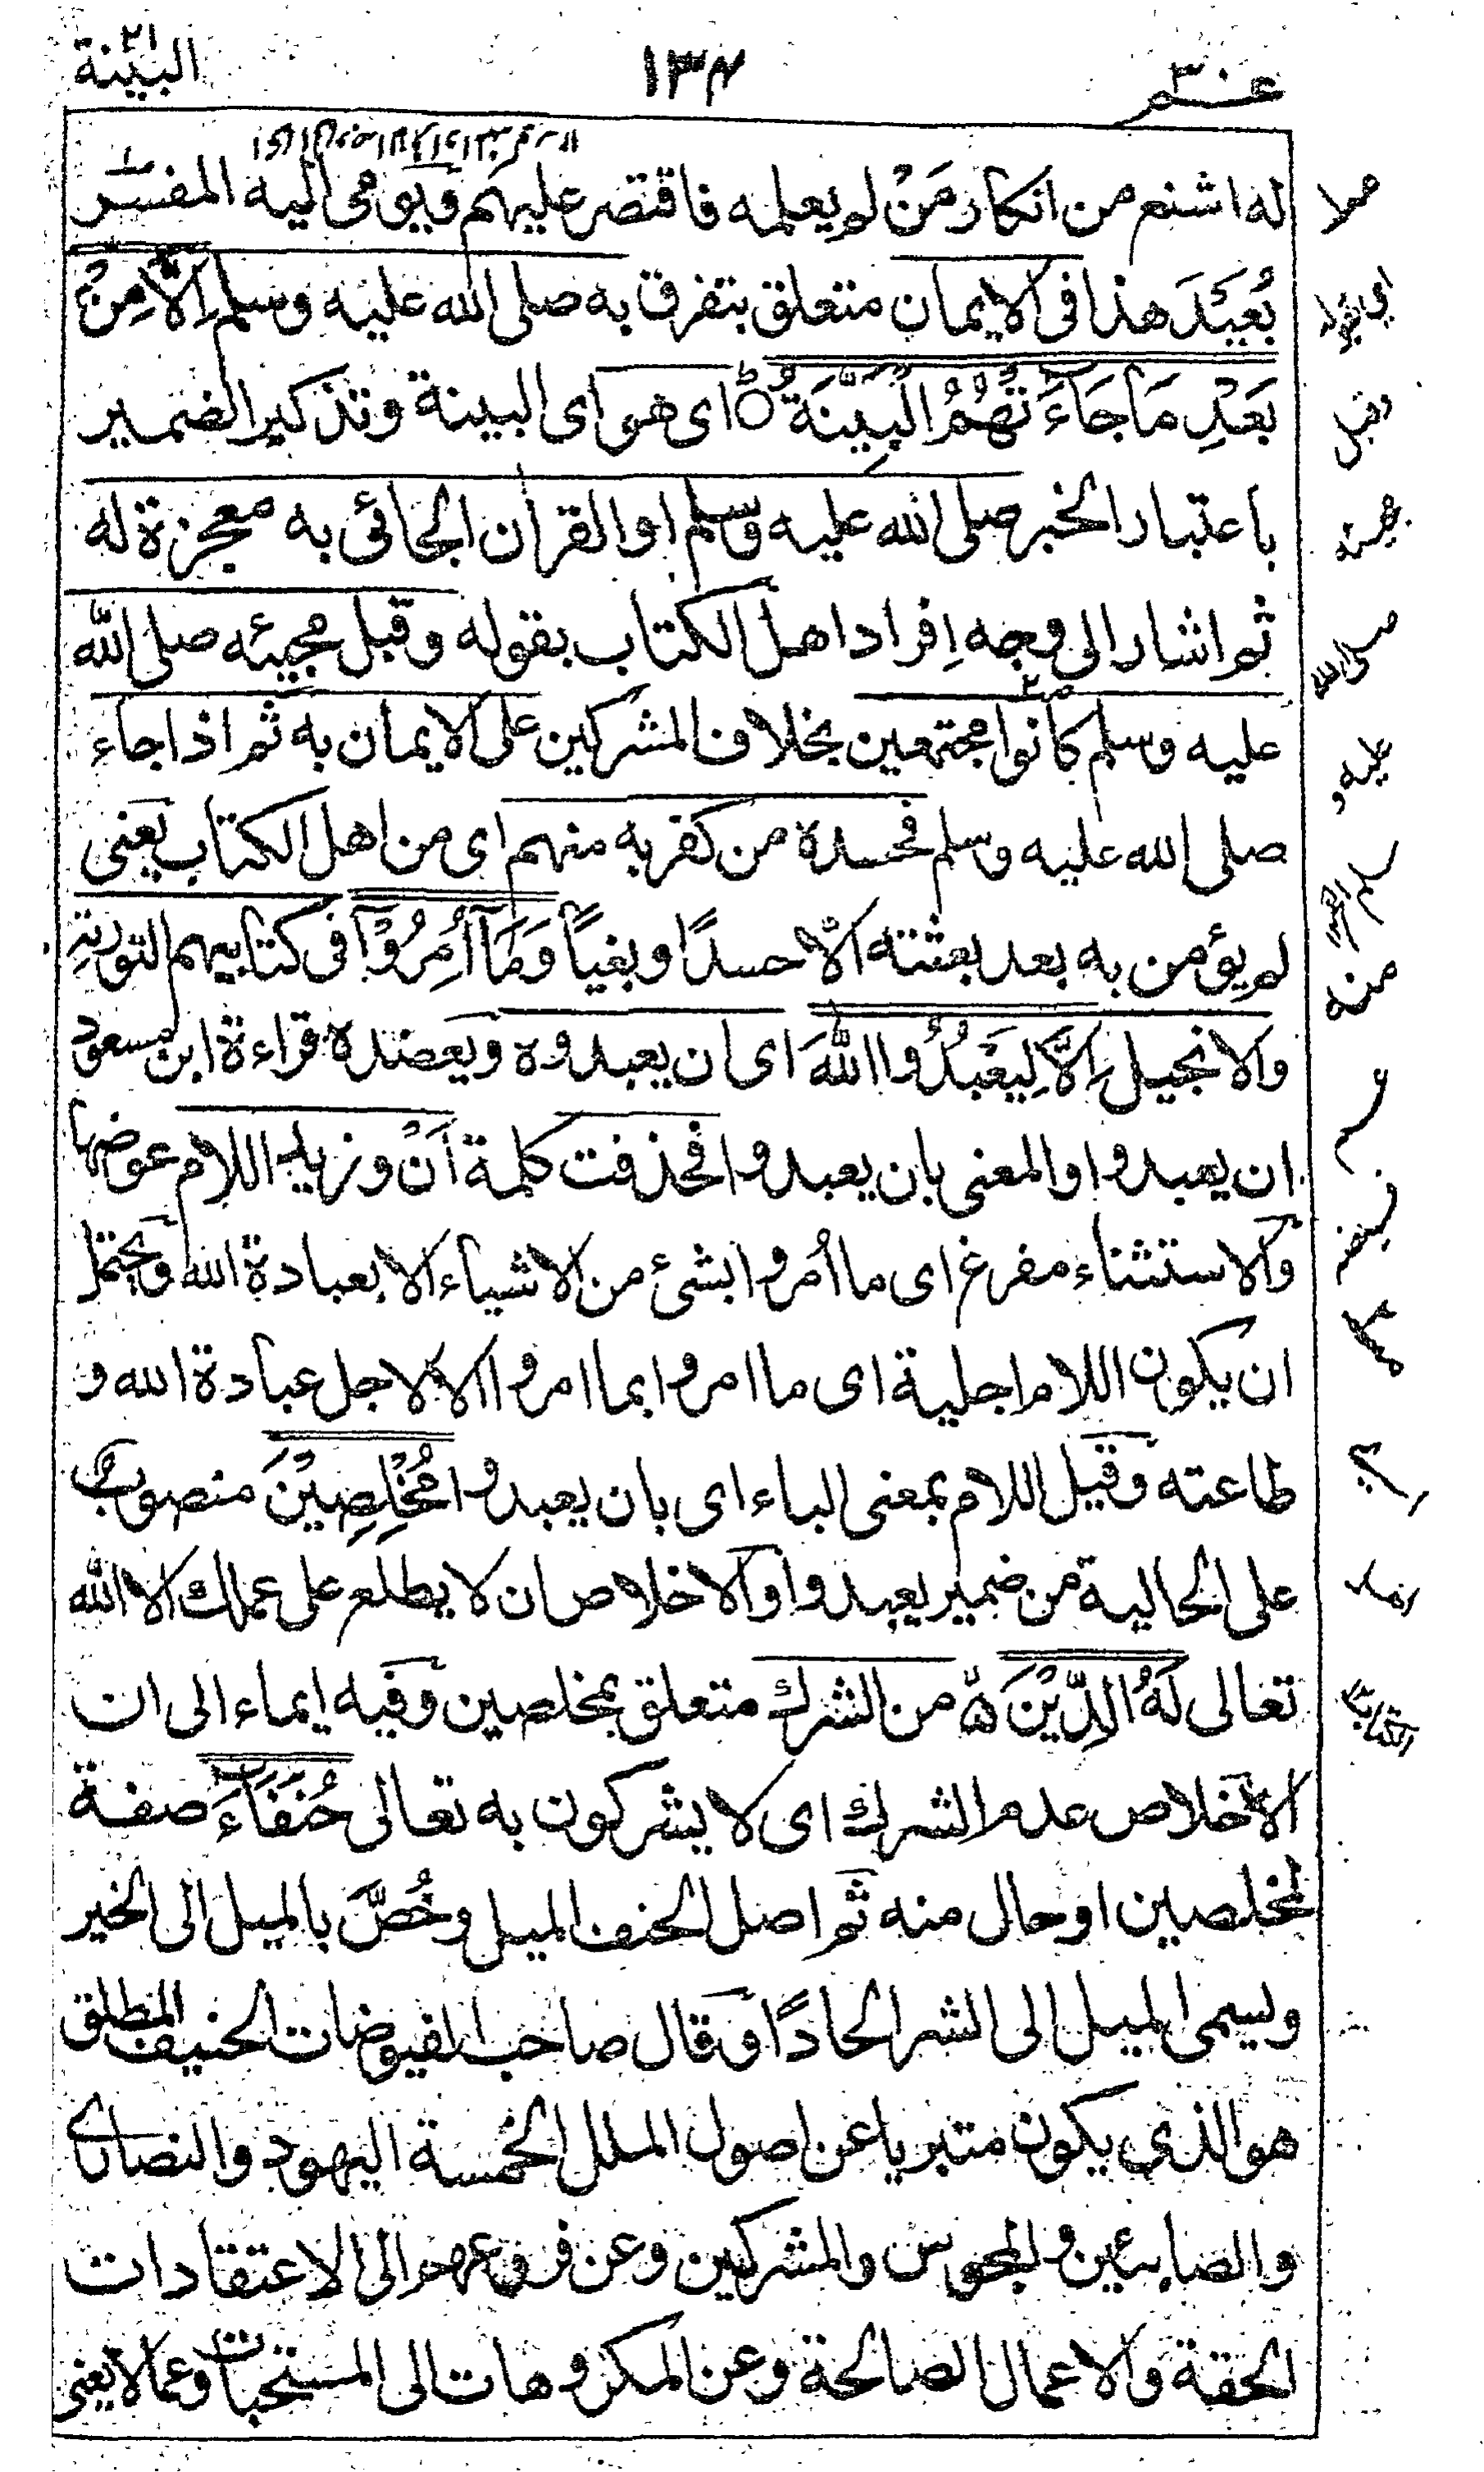 عـم ٣٠
١٣٤
البينة
له اشنع من انكار مَنْ لم يعلمه فاقتصر عليهم ويومى اليه المفسر
بُعَيْدَ هذا فى الايمان متعلق بتفرق به صلى الله عليه وسلم اِلَّا مِنْۢ
بَعْدِ مَا جَآءَتْهُمُ الْبَيِّنَةُ اى هو اى البينة وتذكير الضمير
باعتبار الخبر صلى الله عليه وسلم او القران الجائى به معجزة له
ثم اشار الى وجه اِفراد اهل الكتاب بقوله وقبل مجيئه صلى الله
عليه وسلم كانوا مجتمعين بخلاف المشركين على الايمان به ثم اذا جاء
صلى الله عليه وسلم فحسده من كفر به منهم اى من اهل الكتاب يعنى
لم يؤمن به بعد بعثته الا حسدًا وبغيًا وَمَآ اُمِرُوْٓا فى كتابيهم التورىة
والانجيل اِلَّا لِيَعْبُدُوا اللّٰهَ اى ان يعبدوه ويعضده قراءة ابن مسعود
ان يعبدوا والمعنى بان يعبدوا فحذفت كلمة اَنْ وزيد اللام عوضها
والاستثناء مفرغ اى ما اُمروا بشئ من الاشياء الا بعبادة الله ويحتمل
ان يكون اللام اجلية اى ما امروا بما امروا الا لاجل عبادة الله و
طاعته وقيل اللام بمعنى الباء اى بان يعبدوا مُخْلِصِيْنَ منصوب
على الحالية من ضمير يعبدوا والاخلاص ان لا يطلع على عملك الا الله
تعالى لَهُ الدِّيْنَ من الشرك متعلق بمخلصين وفيه ايماء الى ان
الاخلاص عدم الشرك اى لا يشركون به تعالى حُنَفَآءَ صفة
لمخلصين او حال منه ثم اصل الحنف الميل وخُصَّ بالميل الى الخير
ويسمى الميل الى الشر الحادًا وقال صاحب الفيوضات الحنيف المطلق
هو الذى يكون متبريا عن اصول الملل الخمسة اليهود والنصارى
والصابئين والمجوس والمشركين وعن فروعهم الى الاعتقادات
الحقة والاعمال الصالحة وعن المكروهات الى المستحبات وعما لا يعنى